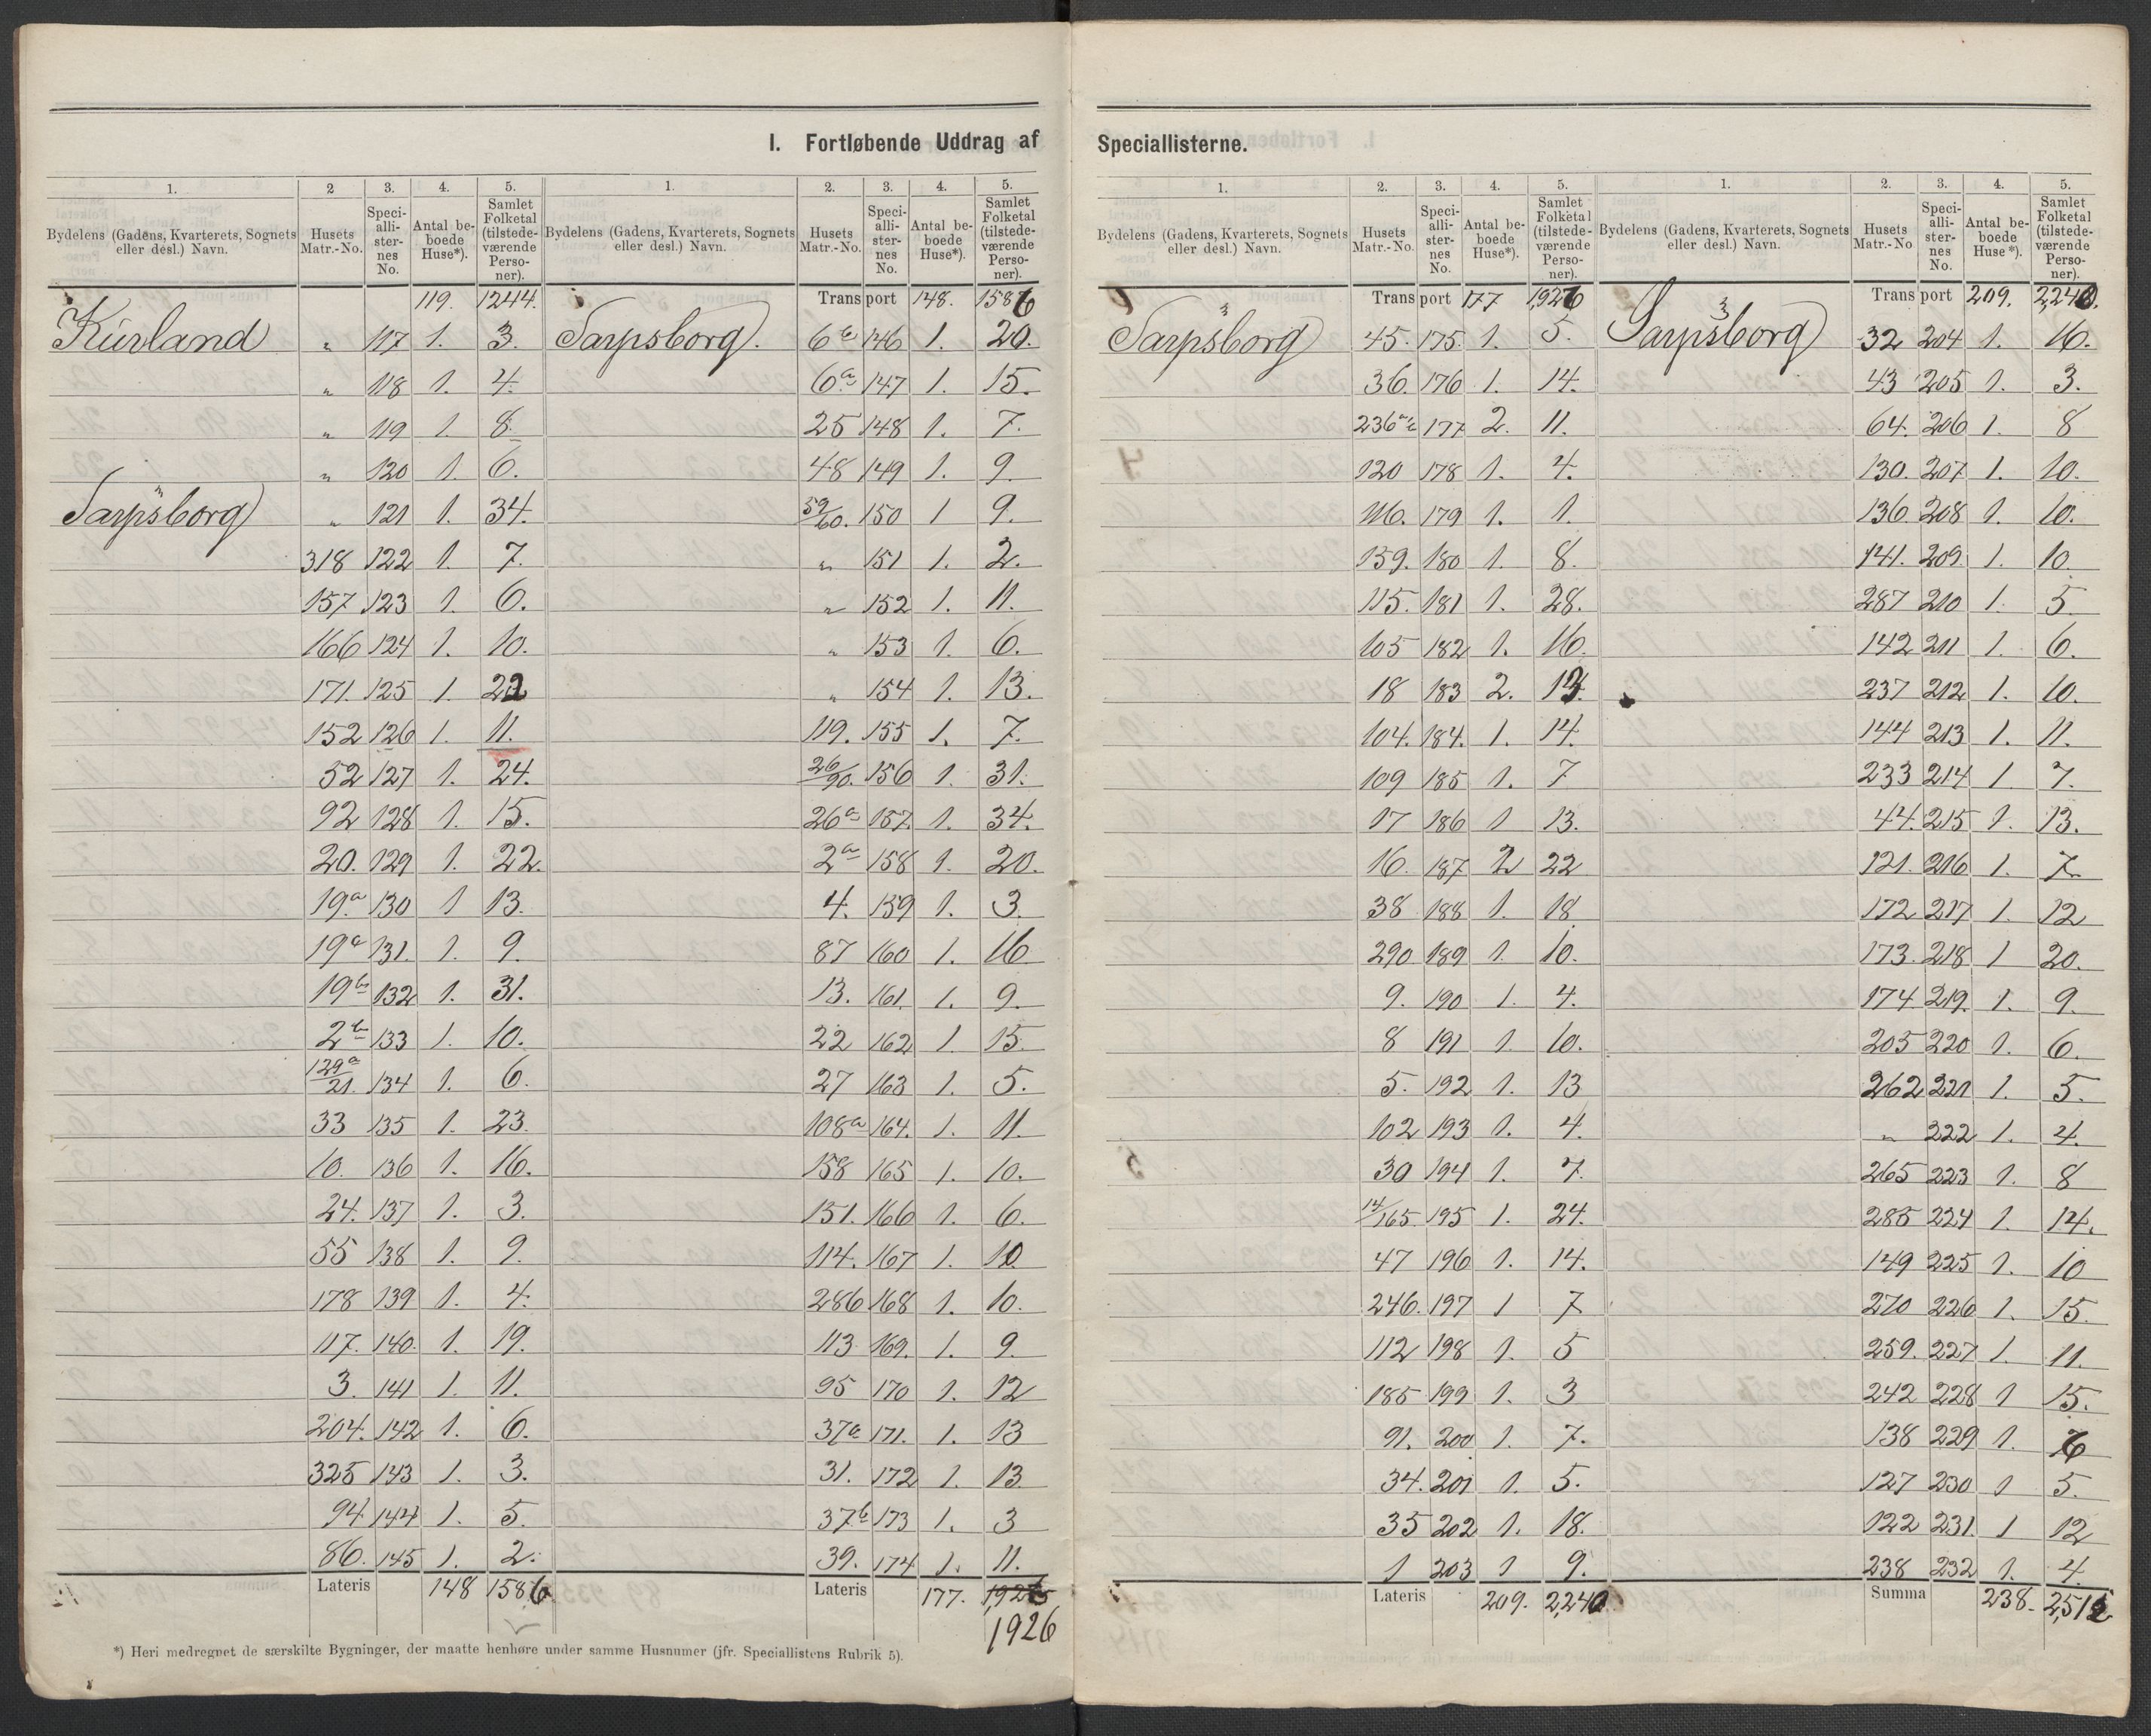 I. Fortløbende Uddrag af Speciallisterne.
1. 2 3. 4. 5. 1. 2. 3. 4. 5.
Bydelens (Gadens, Kvarterets, Sognets eller desl.) Navn. Husets Matr.-No. Speciallisternes No. Antal beboede Huse*). Samlet Folketal (tilstedeværende Personer). Bydelens (Gadens, Kvarterets, Sognets eller desl.) Navn. Husets Matr.-No. Speciallisternes No. Antal beboede Huse*). Samlet Folketal (tilstedeværende Personer).
119. 1244.
Kurland „ 117 1. 3.
„ 118 1. 4.
„ 119 1. 8.
„ 120 1. 6.
Sarpsborg „ 121 1. 34.
318 122 1. 7.
157 123 1. 6.
166 124 1. 10.
171. 125 1. 22
152 126 1. 11.
52 127 1. 24.
92 128 1. 15.
20. 129 1. 22.
19a 130 1 13.
19a 131. 1. 9.
19b 132 1. 31.
2b 133 1. 10.
129a/21. 134 1. 6.
33 135 1. 23.
10. 136 1. 16.
24. 137 1. 3.
55 138 1. 9.
178 139 1. 4.
117. 140. 1. 19.
3. 141 1. 11.
204. 142 1. 6.
325 143 1. 3.
94 144 1. 5.
86. 145 1. 2.
Lateris 148 1586
Transport 148. 1586
Sarpsborg. 6b 146 1. 20.
6a 147 1. 15.
25 148 1. 7.
48 149 1. 9.
59/60. 150 1 9.
„ 151 1. 2.
„ 152 1. 11.
„ 153 1. 6.
„ 154 1. 13.
119. 155 1. 7.
26/90. 156 1. 31.
26a 157. 1. 34.
2a 158 1. 20.
4. 159 1. 3.
87 160 1. 16
13. 161. 1. 9.
22 162 1. 15.
27 163 1. 5.
108a 164. 1. 11.
158 165 1. 10.
151. 166 1. 6.
114. 167 1. 10
286 168 1. 10.
113 169. 1. 9.
95 170 1. 12
37a 171. 1. 13
31. 172 1. 13
37b 173 1. 3
39. 174 1. 11.
Lateris 177.
1926
*) Heri medregnet de særskilte Bygninger, der maatte henhøre under samme Husnumer (jfr. Speciallistens Rubrik 5).
1. 2. 3. 4. 5. 1. 2. 3. 4. 5.
Bydelens (Gadens, Kvarterets, Sognets eller desl.) Navn. Husets Matr.-No. Speciallisternes No. Antal beboede Huse*). Samlet Folketal (tilstedeværende Personer). Bydelens (Gadens, Kvarterets, Sognets eller desl.) Navn. Husets Matr.-No Speciallisternes No. Antal beboede Huse*). Samlet Folketal (tilstedeværende Personer).
Transport 177 1,926
Sarpsborg 45. 175. 1. 5.
36. 176 1. 14.
177 2. 11.
120 178 1. 4.
116. 179 1. 1.
159. 180 1. 8.
115. 181 1. 28.
105 182 1. 16.
18 183 2. 13.
104. 184. 1. 14.
109 185 1. 7
17 186 1 13.
16. 187 2 22
38 188 1. 18
290 189 1. 10.
9. 190 1. 4.
8 191 1. 10.
5. 192 1. 13
102 193 1. 4.
30 194 1. 7.
14/165. 195 1. 24.
47 196 1. 14.
246. 197 1 7
112 198 1. 5
185 199 1. 3
91. 200 1. 7.
34. 201 1. 5.
35 202 1. 18.
1 203 1 9.
Lateris 209. 2,240
Transport 209. 2,240.
Sarpsborg 32 204 1. 16.
43 205 1. 3.
64. 206 1. 8
130. 207 1. 10.
136 208 1. 10.
141. 209. 1. 10.
287 210 1. 5
142 211 1. 6.
237 212 1. 10.
144 213 1. 11.
233 214 1. 7.
44. 215 1. 13.
121. 216 1. 7.
172 217 1. 12
173. 218 1 20.
174 219. 1. 9.
205 220 1. 6.
262 221 1. 5.
„ 222 1. 4.
265 223 1. 8
285 224 1. 14.
149 225 1. 10
270 226 1. 15.
259. 227 1. 11.
242 228 1 15.
138 229 1. 6
127 230 1 5.
122 231. 1 12
238 232 1. 4.
Summa 238. 2,512